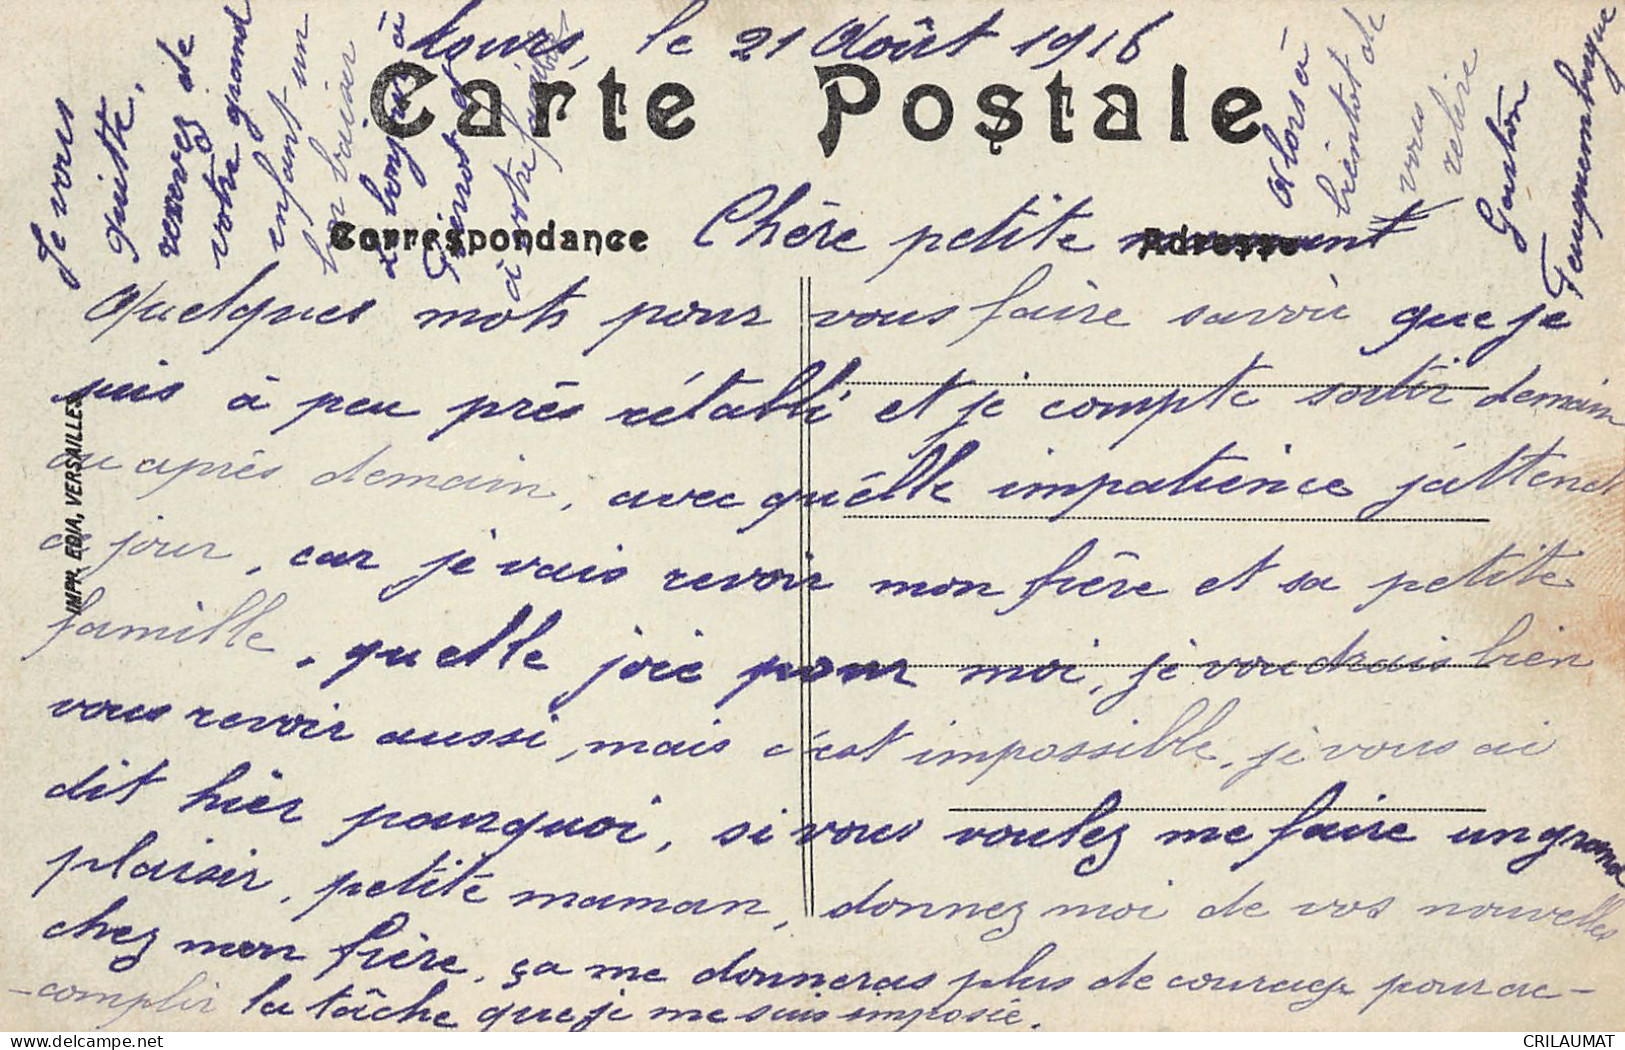 Tours, le 21 Août 1916
Carte Postale
Correspondance
Adresse
Chère petite
Quelques mots pour vous faire savoir que je
suis à peu près rétabli et je compte sortir demain
ou après demain, avec qu'élle impatience j'attend
ce jour, car je vais revoir mon frère et sa petite
famille, quelle joie pour moi, je voudrais bien
vous revoir aussi, mais c'est impossible, je vous ai
dit hier pourquoi, si vous voulez me faire un grand
plaisir, petite maman, donnez moi de vos nouvelles
chez mon frère, ça me donneras plus de courage pour ac-
-complir la tâche que je me suis imposée.
Je vous
quitte,
recevez de
votre grand
enfant un
bon baiser
bonjour à
Pierrot et
à votre
Alors à
bientôt de
vous
relire
Gaston
IMPR. EDIA, VERSAILLES
CRILAUMAT